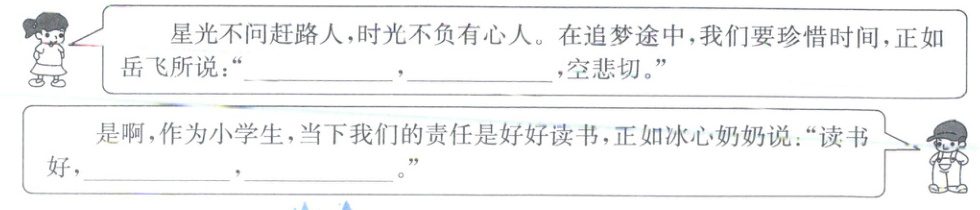 星光不问赶路人,时光不负有心人。在追梦途中,我们要珍惜时间,正如
岳飞所说:“____________,____________,空悲切。”
是啊,作为小学生,当下我们的责任是好好读书,正如冰心奶奶说:“读书
好,____________,____________。”